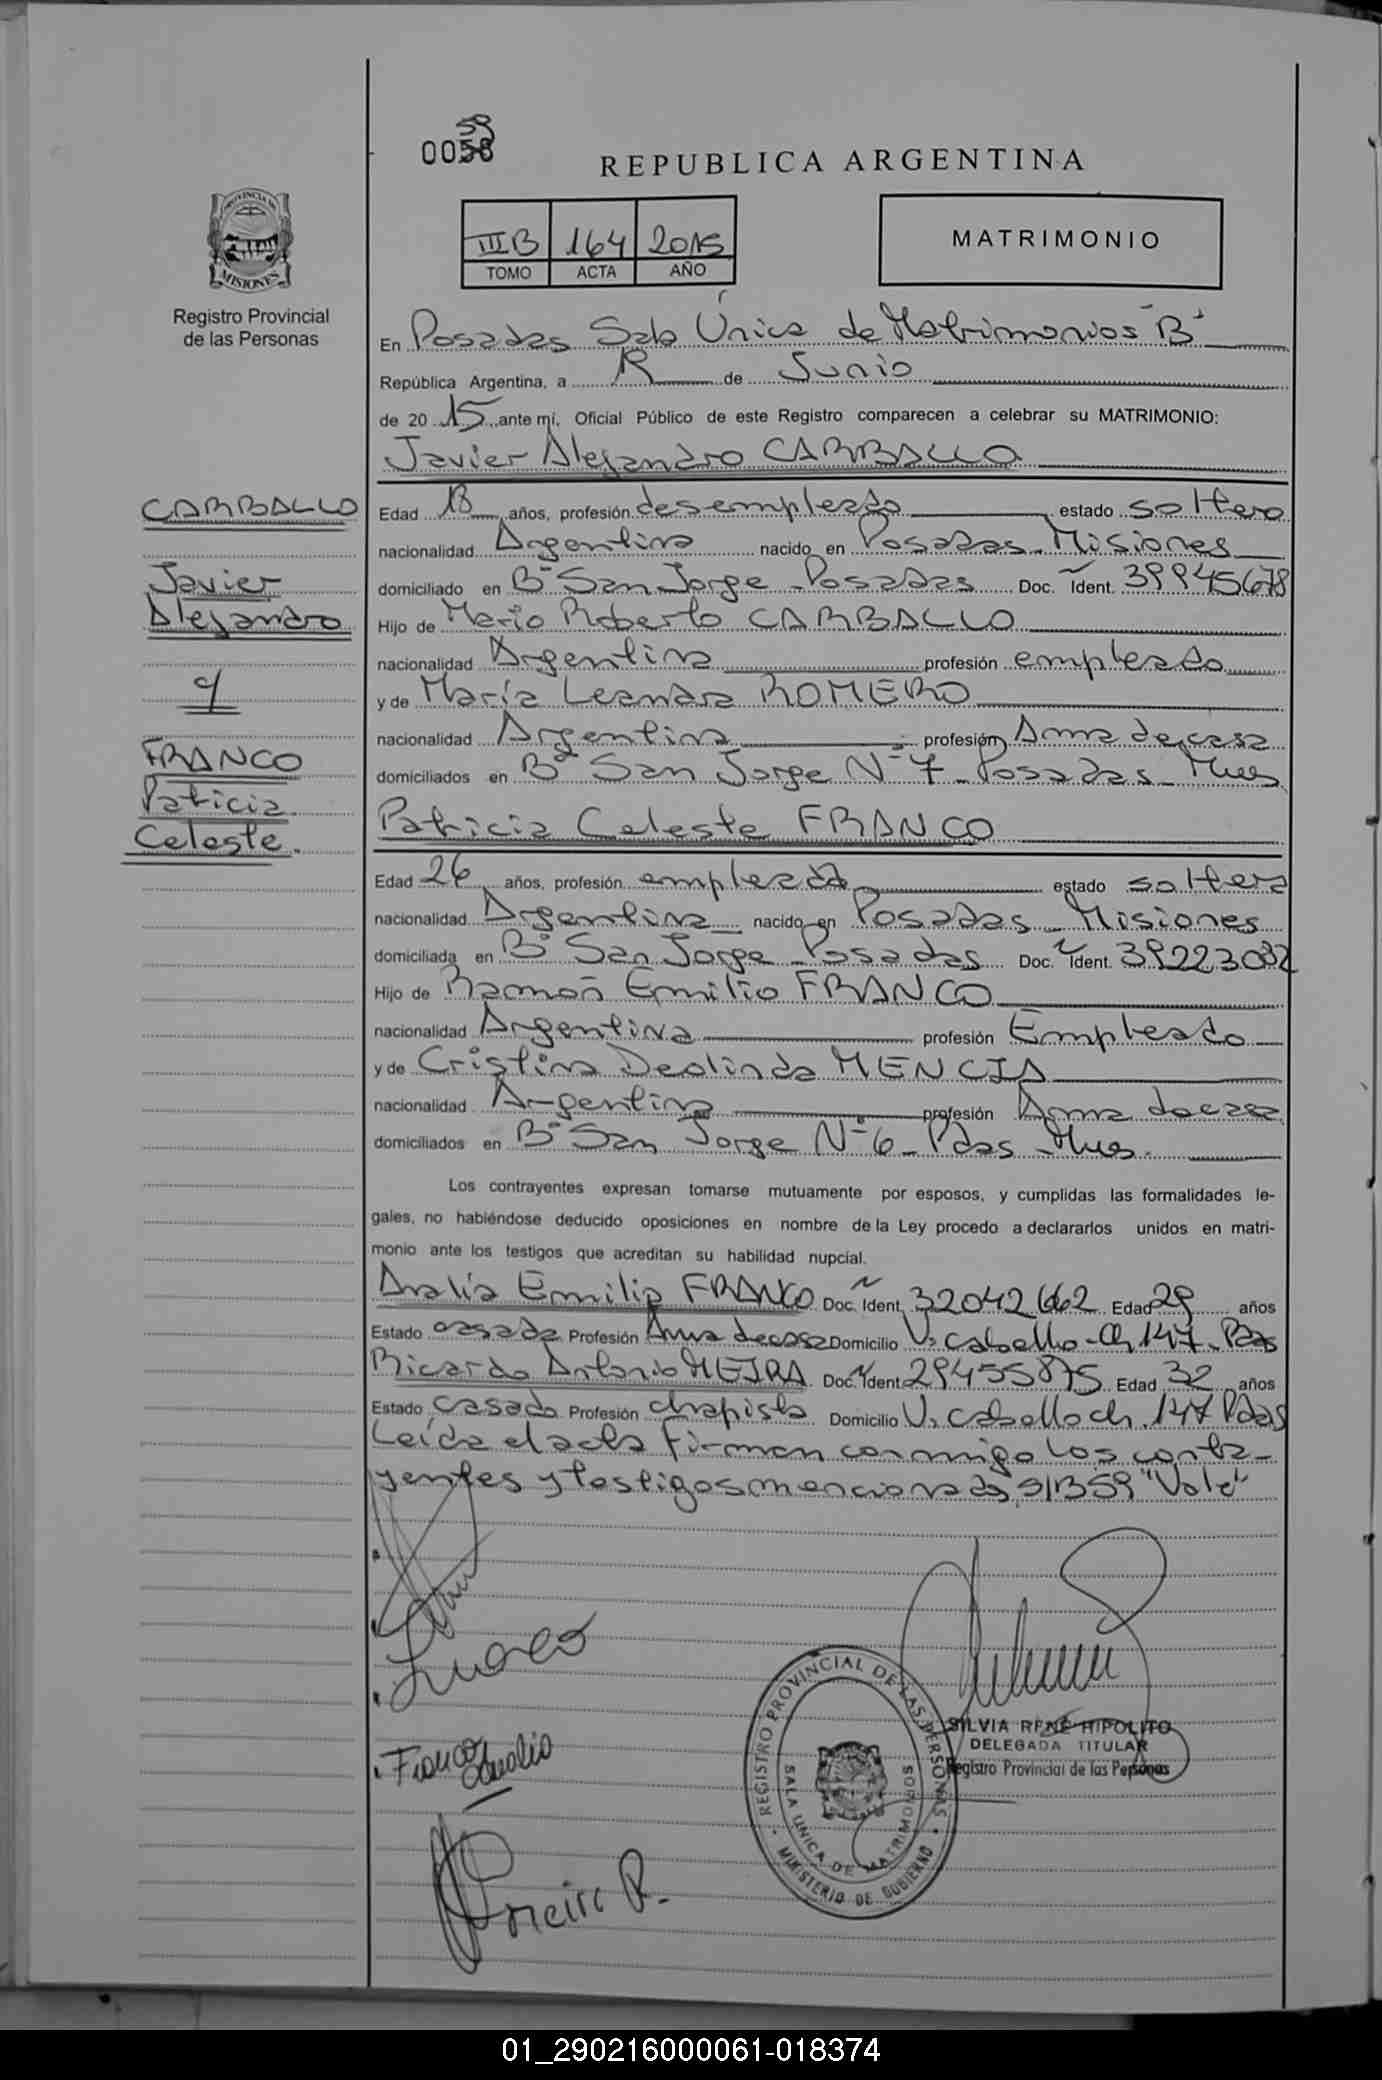 0058
59
REPUBLICA ARGENTINA
IIIB 164 2015
TOMO ACTA AÑO
MATRIMONIO
PROVINCIA DE
MISIONES
Registro Provincial
de las Personas
En Posadas Sala Única de Matrimonios "B"
República Argentina, a 12 de Junio
de 2015 ante mí, Oficial Público de este Registro comparecen a celebrar su MATRIMONIO:
Javier Alejandro CARBALLO
CARBALLO
Javier
Alejandro
y
FRANCO
Patricia
Celeste.
Edad 18 años, profesión desempleado estado soltero
nacionalidad Argentina nacido en Posadas - Misiones
domiciliado en B° San Jorge - Posadas Doc. Ident. 39945678
Hijo de Mario Roberto CARBALLO
nacionalidad Argentina profesión empleado
y de María Leandra ROMERO
nacionalidad Argentina profesión Ama de casa
domiciliados en B° San Jorge N° 7 - Posadas - Mnes
Patricia Celeste FRANCO
Edad 26 años, profesión empleada estado soltera
nacionalidad Argentina nacido en Posadas - Misiones
domiciliada en B° San Jorge - Posadas Doc. Ident. 39223082
Hijo de Ramón Emilio FRANCO
nacionalidad Argentina profesión Empleado
y de Cristina Deolinda MENCIA
nacionalidad Argentina profesión Ama de casa
domiciliados en B° San Jorge N° 6 - Pdas - Mnes.
Los contrayentes expresan tomarse mutuamente por esposos, y cumplidas las formalidades le-
gales, no habiéndose deducido oposiciones en nombre de la Ley procedo a declararlos unidos en matri-
monio ante los testigos que acreditan su habilidad nupcial.
Analía Emilia FRANCO Doc. Ident. 32042662 Edad 29 años
Estado casada Profesión Ama de casa Domicilio V. Cabello - Ch 147 - Pdas
Ricardo Antonio NEIRA Doc. Ident 29455875 Edad 32 años
Estado casado Profesión chapista Domicilio V. Cabello ch. 147 Pdas
Leída el acta firman conmigo los contra-
yentes y testigos mencionados S/B 59 "Vale"
Franco
Franco Analia
Neira R.
REGISTRO PROVINCIAL DE LAS PERSONAS
SALA UNICA DE MATRIMONIOS
MINISTERIO DE GOBIERNO
SILVIA RENE HIPOLITO
DELEGADA TITULAR
Registro Provincial de las Personas
01_290216000061-018374